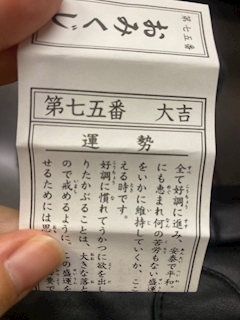 第七五番
おみくじ
第七五番 大吉
運勢
全て好調に進み、安泰で平和。
にも恵まれ何の苦労もない盛運
をいかに維持していくか、ここ
える時です。
好調に慣れてうかつに欲を出し
りたかぶることは、大きな落と
ので戒めるように、この盛運
せるためには思